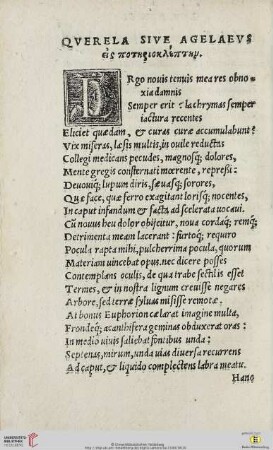 QVERELA SIVE AGELAEVS
εἰς ποτηριοκλέπτην.
Rgo novis tenuis mea res obno
xia damnis
Semper erit? lachrymas semper
iactura recentes
Eliciet quædam, & curas curæ accumulabunt?
Vix miseras, læsis multis, in ovile reductas
Collegi medicans pecudes, magnosq; dolores,
Mente gregis consternati mœrente, repressi:
Devoviq; lupum diris, sævasq; sorores,
Quæ face, quæ ferro exagitant lorisq; nocentes,
In caput infandum & facta ad scelerata vocavi.
Cū novus heu dolor obijcitur, nova cordaq; remq;
Detrimenta meam lacerant: furtoq; requiro
Pocula rapta mihi, pulcherrima pocula, quorum
Materiam vincebat opus. nec dicere posses
Contemplans oculis, de qua trabe sectilis esset
Termes, & in nostra lignum crevisse negares
Arbore, sed terræ sylvas misisse remotæ.
At bonus Euphorion cælarat imagine multa,
Frondeq; acanthifera geminas obduxerat oras:
In medio vivis saliebat fontibus unda:
Septenas, mirum, unda vias diversa recurrens
Ad caput, & liquido complectens labra meatu.
Hanc